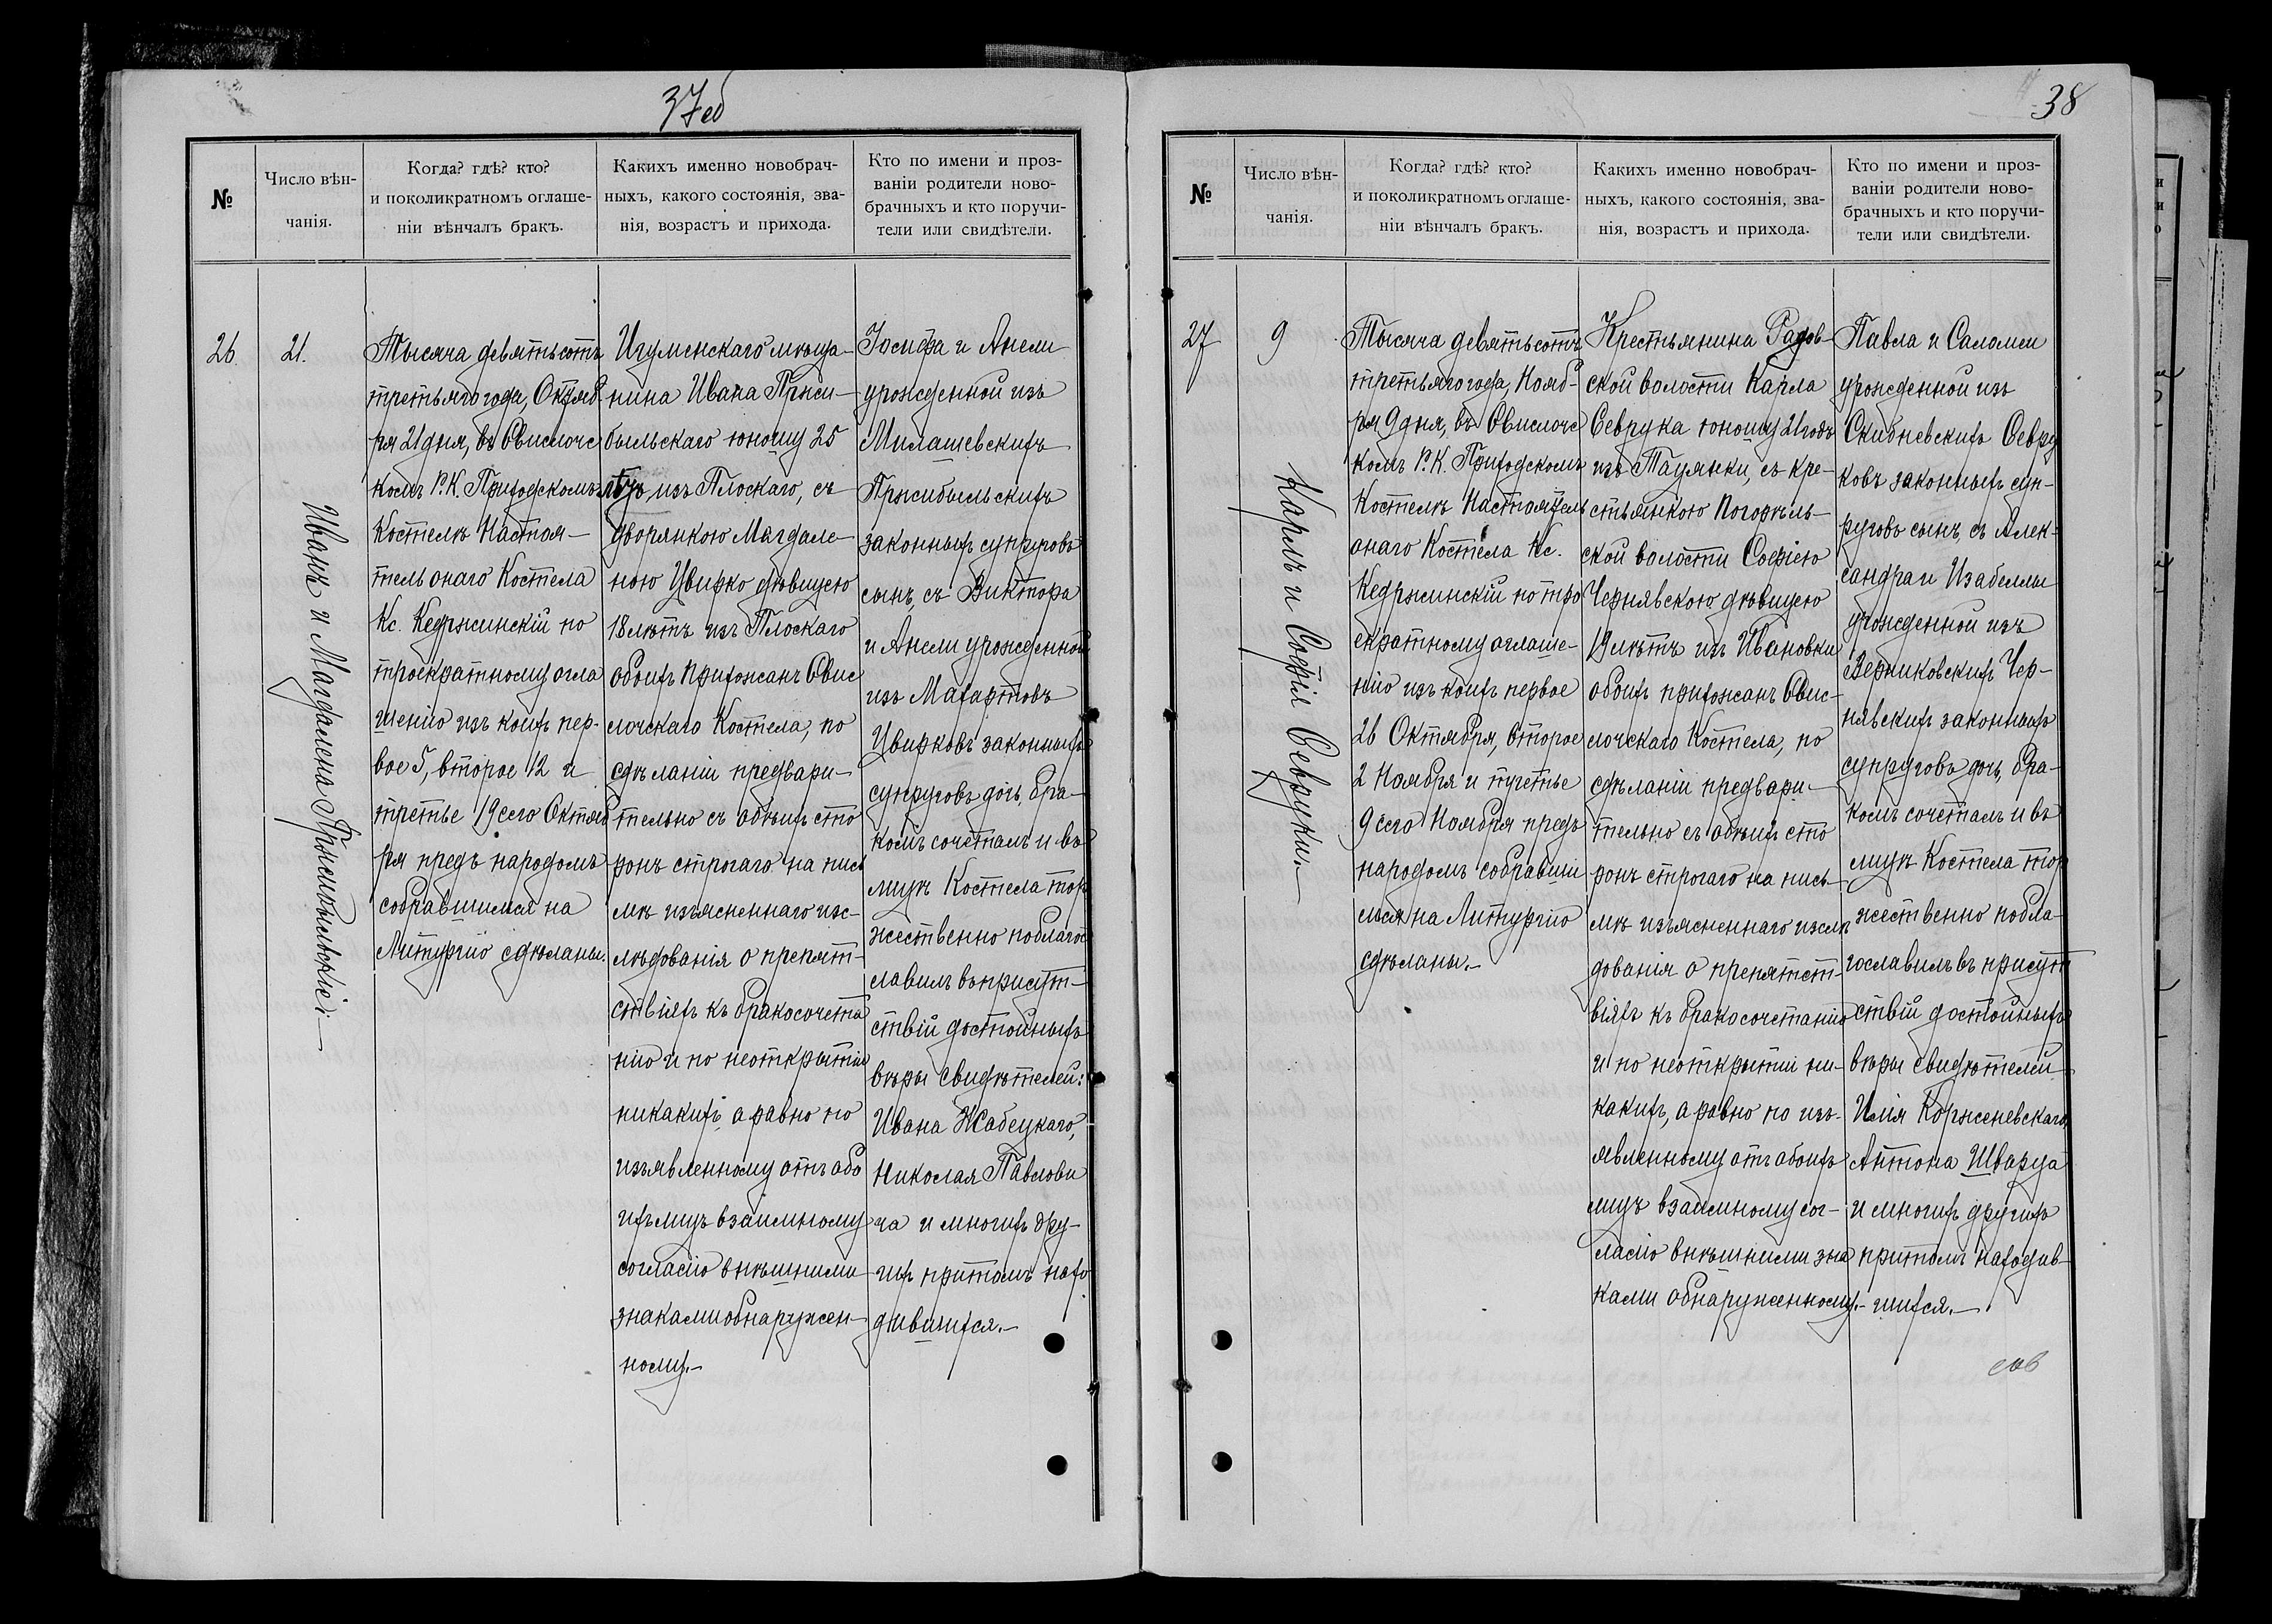 37об
№
Число вѣн-
чанія.
Когда? гдѣ? кто?
и поколикратномъ оглаше-
ніи вѣнчалъ бракъ.
Какихъ именно новобрач-
ныхъ, какого состоянія, зва-
нія, возрастъ и прихода.
Кто по имени и проз-
ваніи родители ново-
брачныхъ и кто поручи-
тели или свидѣтели.
26.
21.
Иванъ и Магдалена Прысибыльскіе.—
Тысяча девятьсотъ
третьяго года, Октяб
ря 21 дня, въ Свислочс
комъ Р. К. Приходскомъ
Костелѣ Настоя—
тель онаго Костела
Кс. Кедржинскій по
троекратному огла
шенію изъ коихъ пер-
вое 5, второе 12 и
третье 19 сего Октяб
ря предъ народомъ
собравшимся на
Литургію сдѣланы.
Игуменскаго мѣща—
нина Ивана Прыси—
быльскаго юношу 25
лѣтъ изъ Плоскаго, съ
дворянкою Магдале—
ною Цвирко дѣвицею
18 лѣтъ изъ Плоскаго
обоихъ прихожанъ Свис
лочскаго Костела, по
сдѣланіи предвари—
тельно съ обѣихъ сто
ронъ строгаго на пись
мѣ изъясненнаго изс—
лѣдованія о препят—
ствіяхъ къ бракосочета
нію и по неоткрытіи
никакихъ, а равно по
изъявленному отъ обо
ихъ лицъ взаимному
согласію внѣшними
знаками обнаружен—
ному.—
Іосифа и Анели
урожденной изъ
Милашевскихъ
Прысибыльскихъ
законныхъ супруговъ
сынъ, съ Виктора
и Анели урожденной
изъ Махартовъ
Цвирковъ законныхъ
супруговъ дочь, бра—
комъ сочеталъ и въ
лицѣ Костела тор
жественно поблагос
лавилъ въ присут—
ствій достойныхъ
вѣры свидѣтелей:
Ивана Жабецкаго,
Николая Павлови
ча и многихъ дру—
гихъ притомъ нахо
дившихся.—
38
№
Число вѣн-
чанія.
Когда? гдѣ? кто?
и поколикратномъ оглаше-
ніи вѣнчалъ бракъ.
Какихъ именно новобрач-
ныхъ, какого состоянія, зва-
нія, возрастъ и прихода.
Кто по имени и проз-
ваніи родители ново-
брачныхъ и кто поручи-
тели или свидѣтели.
27
9
Карлъ и Софія Севруки.—
Тысяча девятьсотъ
третьяго года, Нояб-
ря 9 дня, въ Свислочс
комъ Р. К. Приходскомъ
Костелѣ Настоятель
онаго Костела Кс.
Кедржинскій по тро
екратному оглаше-
нію изъ коихъ первое
26 Октября, второе
2 Ноября и третье
9 сего Ноября предъ
народомъ собравши
мся на Литургію
сдѣланы.—
Крестьянина Гадов—
ской волости Карла
Севрука юношу 21 годъ
изъ Таумянки, съ кре—
стьянкою Погорѣль—
ской волости Софіею
Чернявскою дѣвицею
19 лѣтъ изъ Ивановки
обоихъ прихожанъ Свис—
лочскаго Костела, по
сдѣланіи предвари—
тельно съ обѣихъ сто
ронъ строгаго на пись—
мѣ изъясненнаго изслѣ
дованія о препятст—
віяхъ къ бракосочетанію
и по неоткрытіи ни—
какихъ, а равно по изъ-
явленному отъ обоихъ
лицъ взаимному сог—
ласію внѣшними зна
ками обнаруженному.—
Павла и Саломеи
урожденной изъ
Скибневскихъ Севру
ковъ законныхъ суп—
руговъ сынъ, съ Алек-
сандра и Изабеллы
урожденной изъ
Вериковскихъ Чер—
нявскихъ законныхъ
супруговъ дочь, бра—
комъ сочеталъ и въ
лицѣ Костела тор
жественно побла—
гославилъ въ присут
ствій достойныхъ
вѣры свидѣтелей
Илія Корженевскаго,
Антона Шварца
и многихъ другихъ
притомъ находив—
шихся.—